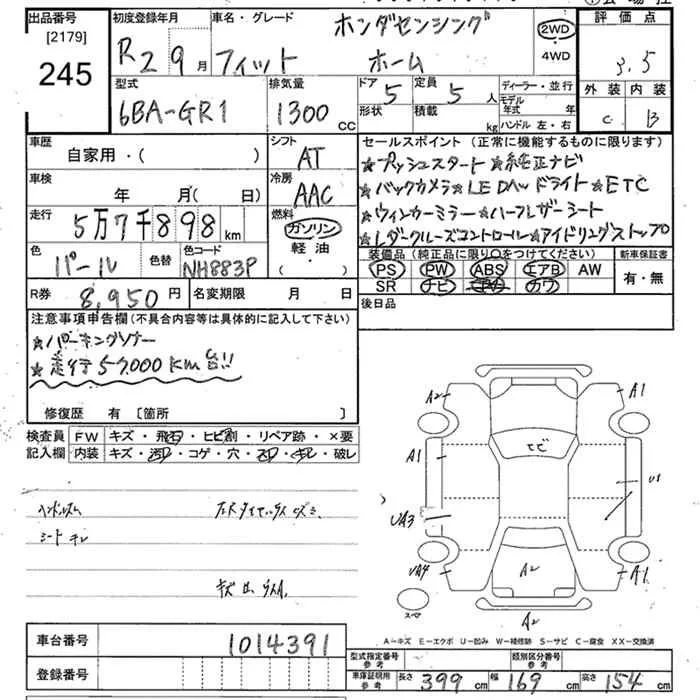 出品番号
[2179]
245
初度登録年月
R2 9月
車名・グレード
ホンダセンシング
フィット ホーム
2WD
・
4WD
評価点
3.5
外装 内装
C B
型式
6BA-GR1
排気量
1300 CC
ドア 5
形状
定員 5人
積載 kg
ディーラー・並行
モデル年式 年
ハンドル 左・右
車歴
自家用・( )
シフト
AT
車検
年 月( 日)
冷房
AAC
走行
5万7千898 km
燃料
ガソリン
軽油
・( )
色
パール
色替
色コード
NH883P
R券
8,950円
名変期限 月 日
セールスポイント(正常に機能するものに限ります)
★プッシュスタート★純正ナビ
★バックカメラ★LEDヘッドライト★ETC
★ウィンカーミラー★ハーフレザーシート
★レダークルーズコントロール★アイドリングストップ
装備品(純正品に限り○をつけてください)
PS PW ABS エアB AW
SR ナビ カワ
新車保証書
有・無
後日品
注意事項申告欄(不具合内容等は具体的に記入して下さい)
★パーキングソナー
★走行57,000km台!!
修復歴 有 [箇所 ]
検査員記入欄
FW キズ・飛石・ヒビ割・リペア跡・×要
内装 キズ・汚れ・コゲ・穴・スレ・キレ・破レ
シート キレ
A2
A1
A1
ヒビ
U1
UA3
UA4
A2
A1
スペア
A2
A-キズ E-エクボ U-凹み W-補修跡 S-サビ C-腐食 XX-交換済
車台番号
1014391
登録番号
型式指定番号
参考
類別区分番号
参考
車庫証明用
参考
長さ 399 cm
幅 169 cm
高さ 154 cm